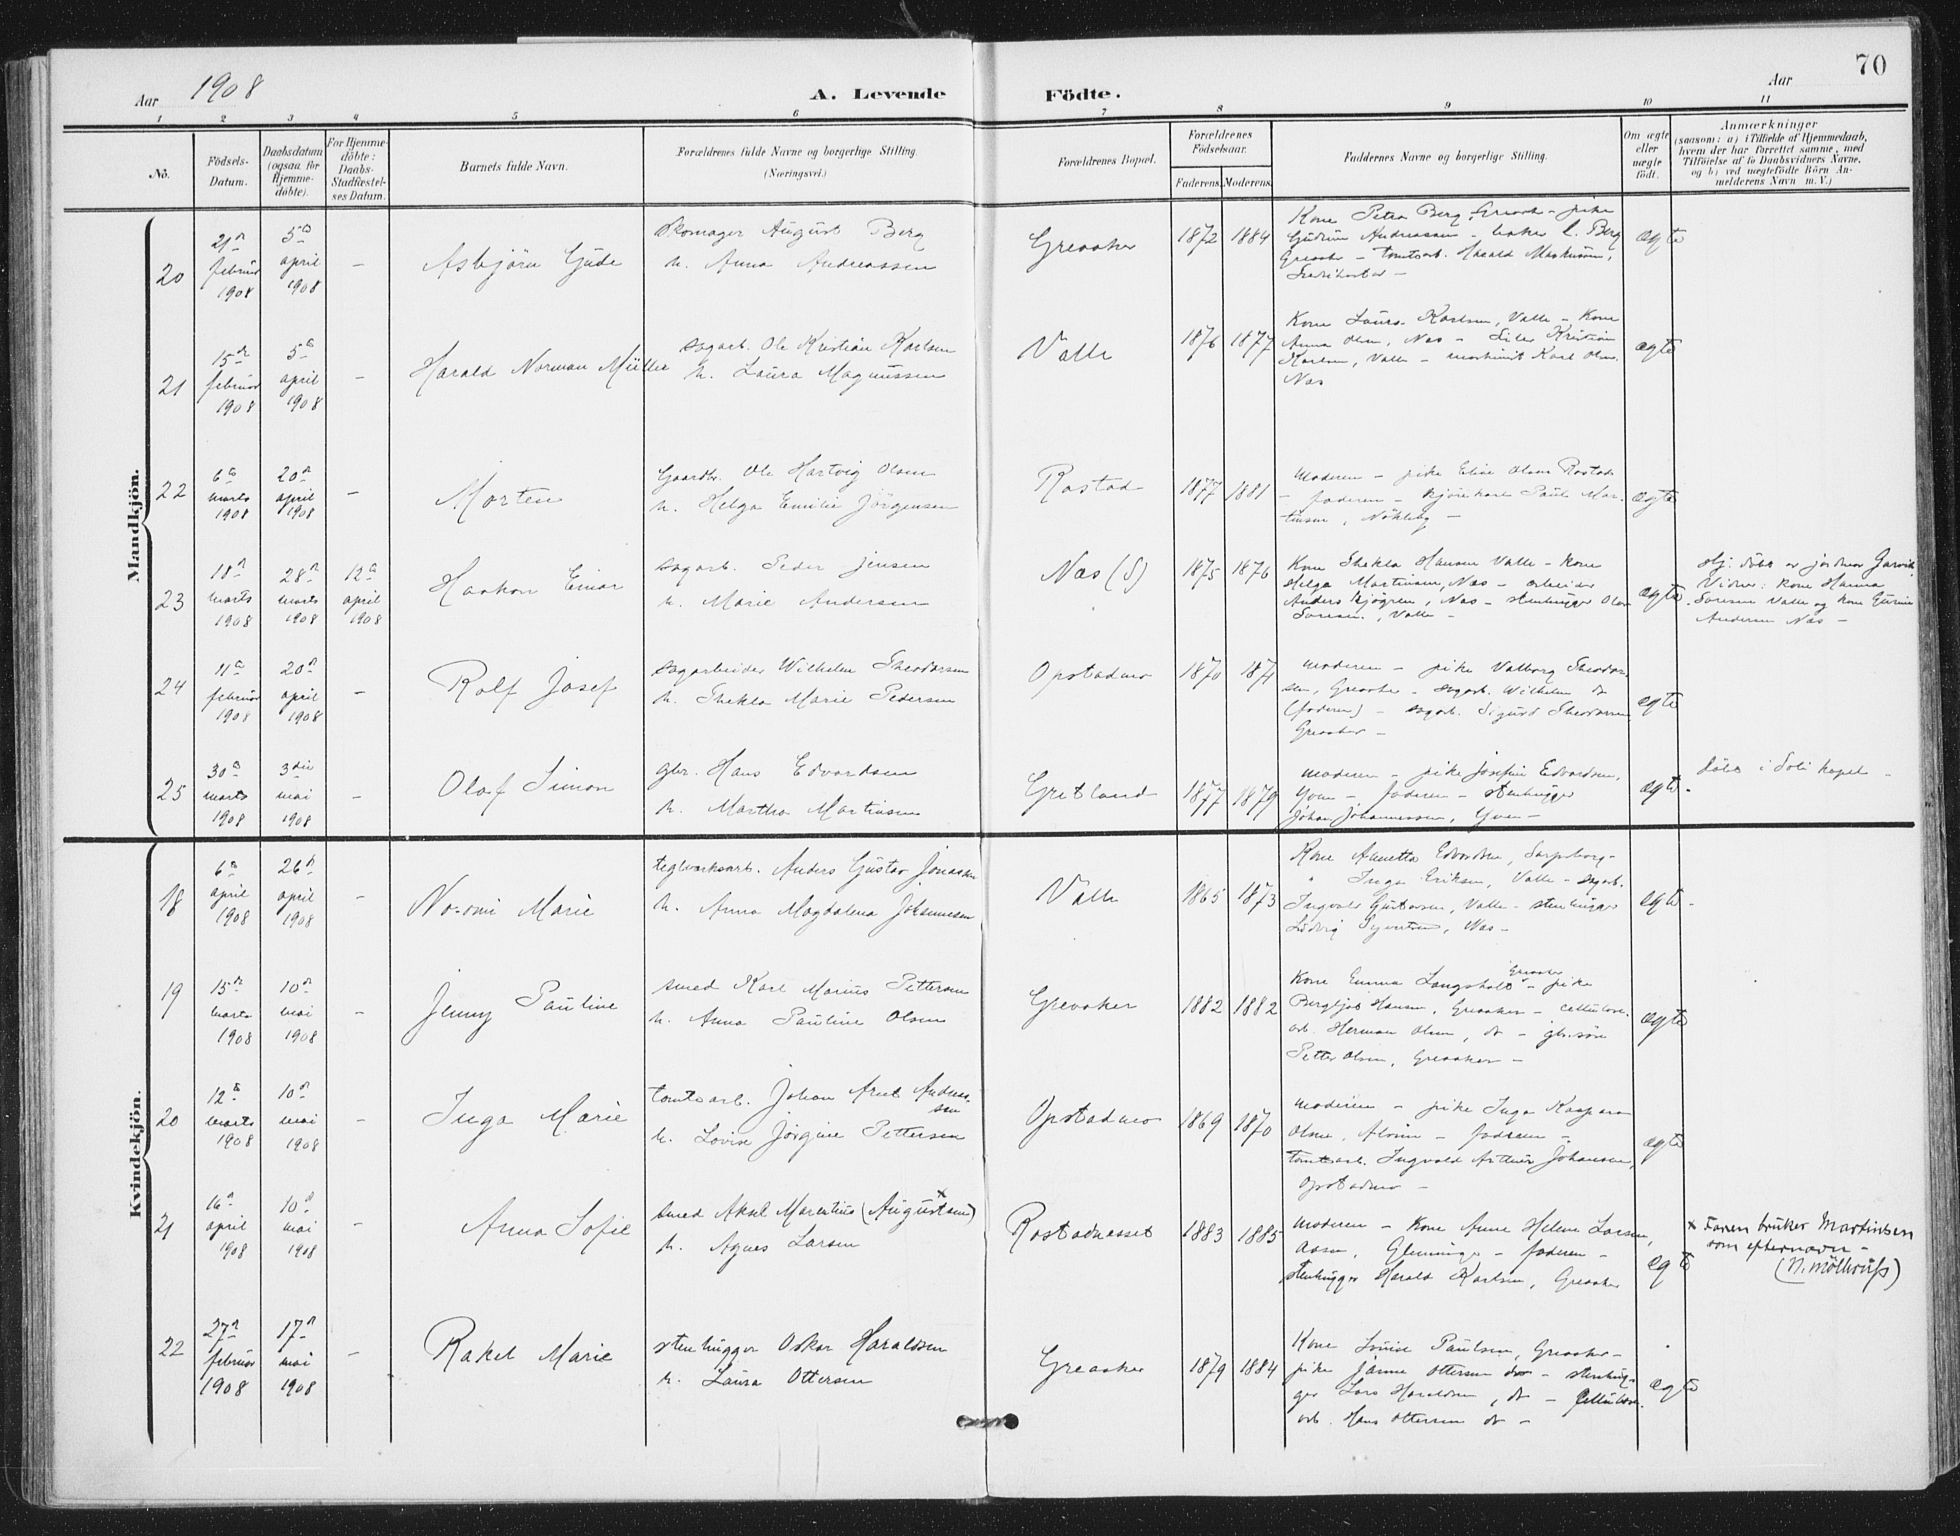 70
Aar 1908
A. Levende Födte.
Aar
1 2 3 4 5 6 7 8 9 10 11
No.
Födsels-Datum.
Daabsdatum (ogsaa for Hjemme-döbte).
For Hjemme-döbte: Daabs-Stadfæstel-ses Datum.
Barnets fulde Navn.
Forældrenes fulde Navne og borgerlige Stilling. (Næringsvei.)
Forældrenes Bopæl.
Forældrenes Födselsaar.
Faderens. Moderens.
Faddernes Navne og borgerlige Stilling.
Om ægte eller uægte födt.
Anmærkninger
(saasom: a) i Tilfælde af Hjemmedaab,
hvem der har forrettet samme, med
Tilföielse af to Daabsvidners Navne,
og b) ved uægtefödte Börn An-
melderens Navn m. V.)
Mandkjön.
20
21 februar 1908
5 april 1908
–
Asbjörn Gude
Skomager August Berg
h. Anna Andreassen
Greaaker
1872 1884
Kone Petra Berg, Greaak – pike
Gudrun Andreassen – baker C. Berg
Greaaker – tomtearb. Harald
ægte
21
15 februar 1908
5 april 1908
–
Harald Norman Müller
sagarb. Ole Kristian Karlsen
h. Laura Magnussen
Valle
1876 1877
Kone Laura Karlsen, Valle – Kone
Anna Olsen, Næs – Kristian
Karlsen, Valle – maskinist Karl Olsen.
Næs
ægte
22
6 marts 1908
20 april 1908
–
Morten
Gaardb. Ole Hartvig Olsen
h. Helga Emilie Jörgensen
Rostad
1877 1881
moderen – pike Elise Olsen Rostad
– faderen – kjörekarl Paul Mar-
tinsen, Nökleby –
ægte
23
18 marts 1908
28 marts 1908
12 april 1908
Haakon Einar
sagarb. Peder Jensen
h. Marie Andersen
Næs (S)
1875 1876
Kone Thekla Hansen Valle – kone
Helga Martinsen, Næs – arbeider
Anders Sjögren, Næs – stenhugger Olav
Sörensen, Valle –
ægte
Hj. döbt av jordmor
Vidner: kone Hanna
Sörensen Valle og kone
Andersen Næs –
24
11 februar 1908
20 april 1908
–
Rolf Josef
sagarbeider Wilhelm Theodorsen
h. Thekla Marie Pedersen
Opstadmo
1870 1871
moderen – pike Valborg Theodor-
sen, Greaaker – sagarb. Wilhelm
(faderen) – sagarb. Sigurd Theodorsen
Greaaker –
ægte
25
30 marts 1908
3die mai 1908
–
Olaf Simon
gbr. Hans Edvardsen
h. Martha Martinsen
Gretland
1877 1879
moderen – pike Josefine Edvardsen,
Yven – faderen – stenhugger
Johan Johannessen, Yven –
ægte
döbt i Soli kapel –
Kvindekjön.
18
6 april 1908
26 april 1908
–
No-omi Marie
teglverksarb. Anders Gustav Jonassen
h. Anna Magdalena Johannesen
Valle
1865 1873
Kone Annette Edvardsen, Sarpsborg –
" Inga Eriksen, Valle – sagarb.
Ingvald Gustavsen, Valle – stenhugger
Ludvig Syvertsen, Næs –
ægte
19
15 marts 1908
10 mai 1908
–
Jenny Pauline
smed Karl Marius Pettersen
h. Anna Pauline Olsen
Greaaker
1882 1882
Kone Emma Langsholt Greaaker – pike
Bergljot Hansen, Greaaker – cellulose-
arb. Herman Olsen, do – gbr.sön
Petter Olsen, Greaaker –
ægte
20
12 marts 1908
10 mai 1908
–
Inga Marie
tomtearb. Johan Arnt Andreas-
sen
h. Lovise Jörgine Pettersen
Opstadmo
1869 1870
moderen – pike Inga Kaspara
Olsen, Alvim – faderen –
tomtearb. Ingvald Arthur Johansen,
Opstadmo –
ægte
21
16 april 1908
10 mai 1908
–
Anna Sofie
Smed Aksel Martinius (Augustsen) x
h. Agnes Larsen
Rostadnesset
1883 1885
moderen – Kone Anne Helene Larsen,
Aasen, Glemminge – faderen –
stenhugger Harald Karlsen, Greaaker
ægte
x Faren bruker Martinsen
som efternavn –
22
27 februar 1908
17 mai 1908
–
Rakel Marie
stenhugger Oskar Haraldsen
h. Laura Ottersen
Greaaker
1879 1884
Kone Louise Paulsen, Greaaker –
pike Janne Ottersen do – stenhug-
ger Lars Haraldsen, do – cellulose-
arb. Hans Ottersen do –
ægte